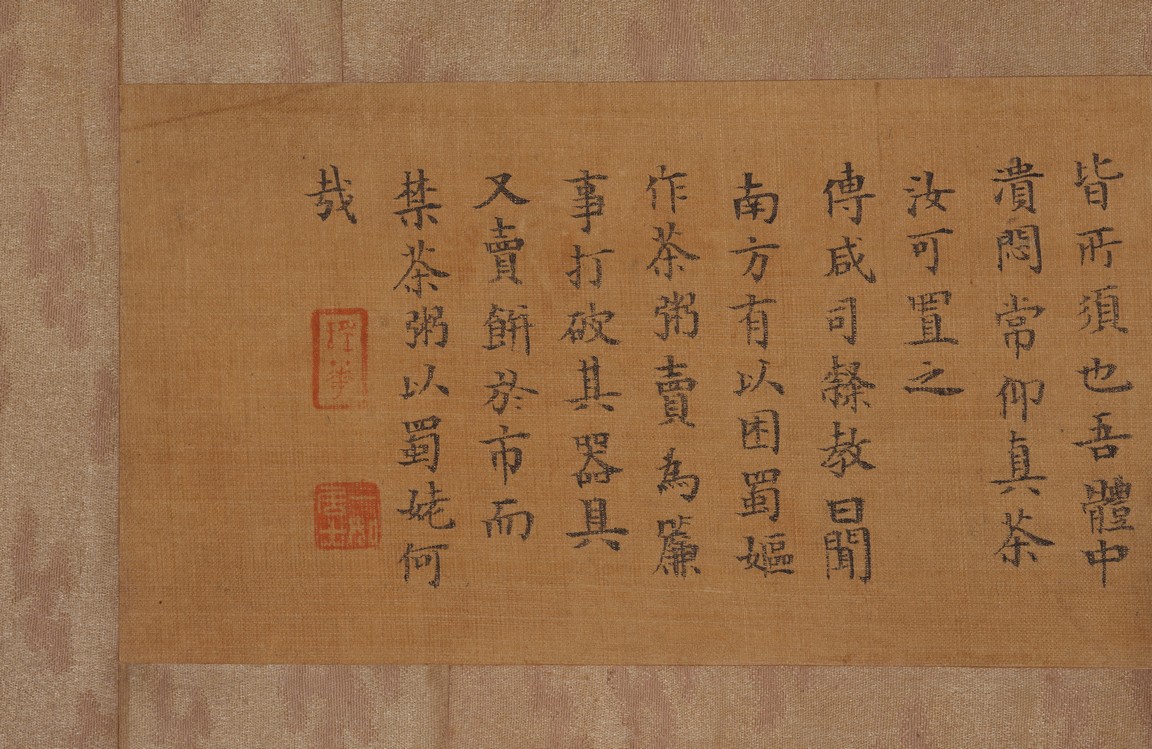 皆所須也吾體中
潰悶常仰真茶
汝可置之
傳咸司隸教曰聞
南方有以困蜀嫗
作茶粥賣為簾
事打破其器具
又賣餅於市而
禁茶粥以蜀姥何
哉